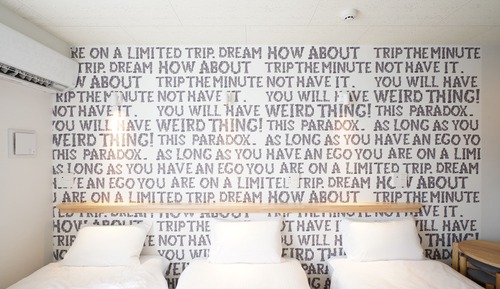 RE ON A LIMITED TRIP. DREAM HOW ABOUT TRIP THE MINUTE
NOT HAVE IT. HOW ABOUT TRIP THE MINUTE NOT HAVE IT.
W ABOUT TRIP THE MINUTE NOT HAVE IT. YOU WILL HAVE
TRIP THE MINUTE NOT HAVE IT. YOU WILL HAVE WEIRD THING!
NOT HAVE IT. YOU WILL HAVE WEIRD THING! THIS PARADOX..
YOU WILL HAVE WEIRD THING! THIS PARADOX.. AS LONG AS YOU
WEIRD THING! THIS PARADOX.. AS LONG AS YOU HAVE AN EGO
THIS PARADOX.. AS LONG AS YOU HAVE AN EGO YOU ARE ON A LIMI
AS LONG AS YOU HAVE AN EGO YOU ARE ON A LIMITED TRIP. DREAM
HAVE AN EGO YOU ARE ON A LIMITED TRIP. DREAM HOW ABOUT
U ARE ON A LIMITED TRIP. DREAM HOW ABOUT TRIP THE MINUTE
TED TRIP. DREAM HOW ABOUT TRIP THE MINUTE NOT HAVE IT.
HOW ABOUT TRIP THE MINUTE NOT HAVE IT. YOU WILL HAVE
TRIP NOT HAVE YOU WILL H WEIRD THING!
NOT YOU WI WEIRD THIS PARADOX..
YO WE THI